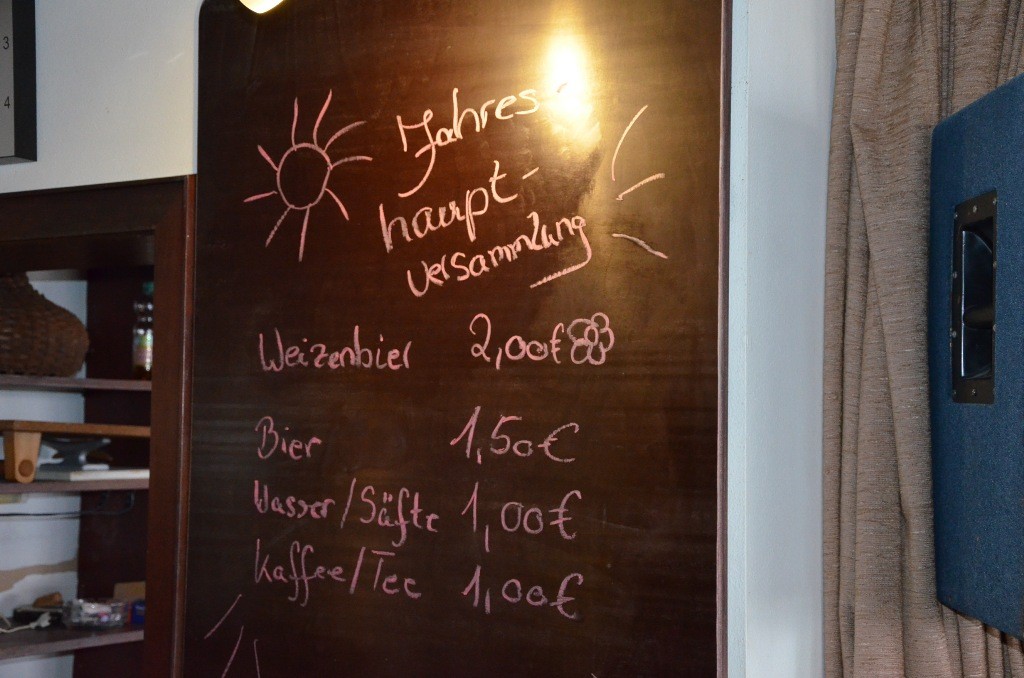 3
4
Jahres-
haupt-
versammlung
Weizenbier 2,00€
Bier 1,50€
Wasser/Säfte 1,00€
Kaffee/Tee 1,00€